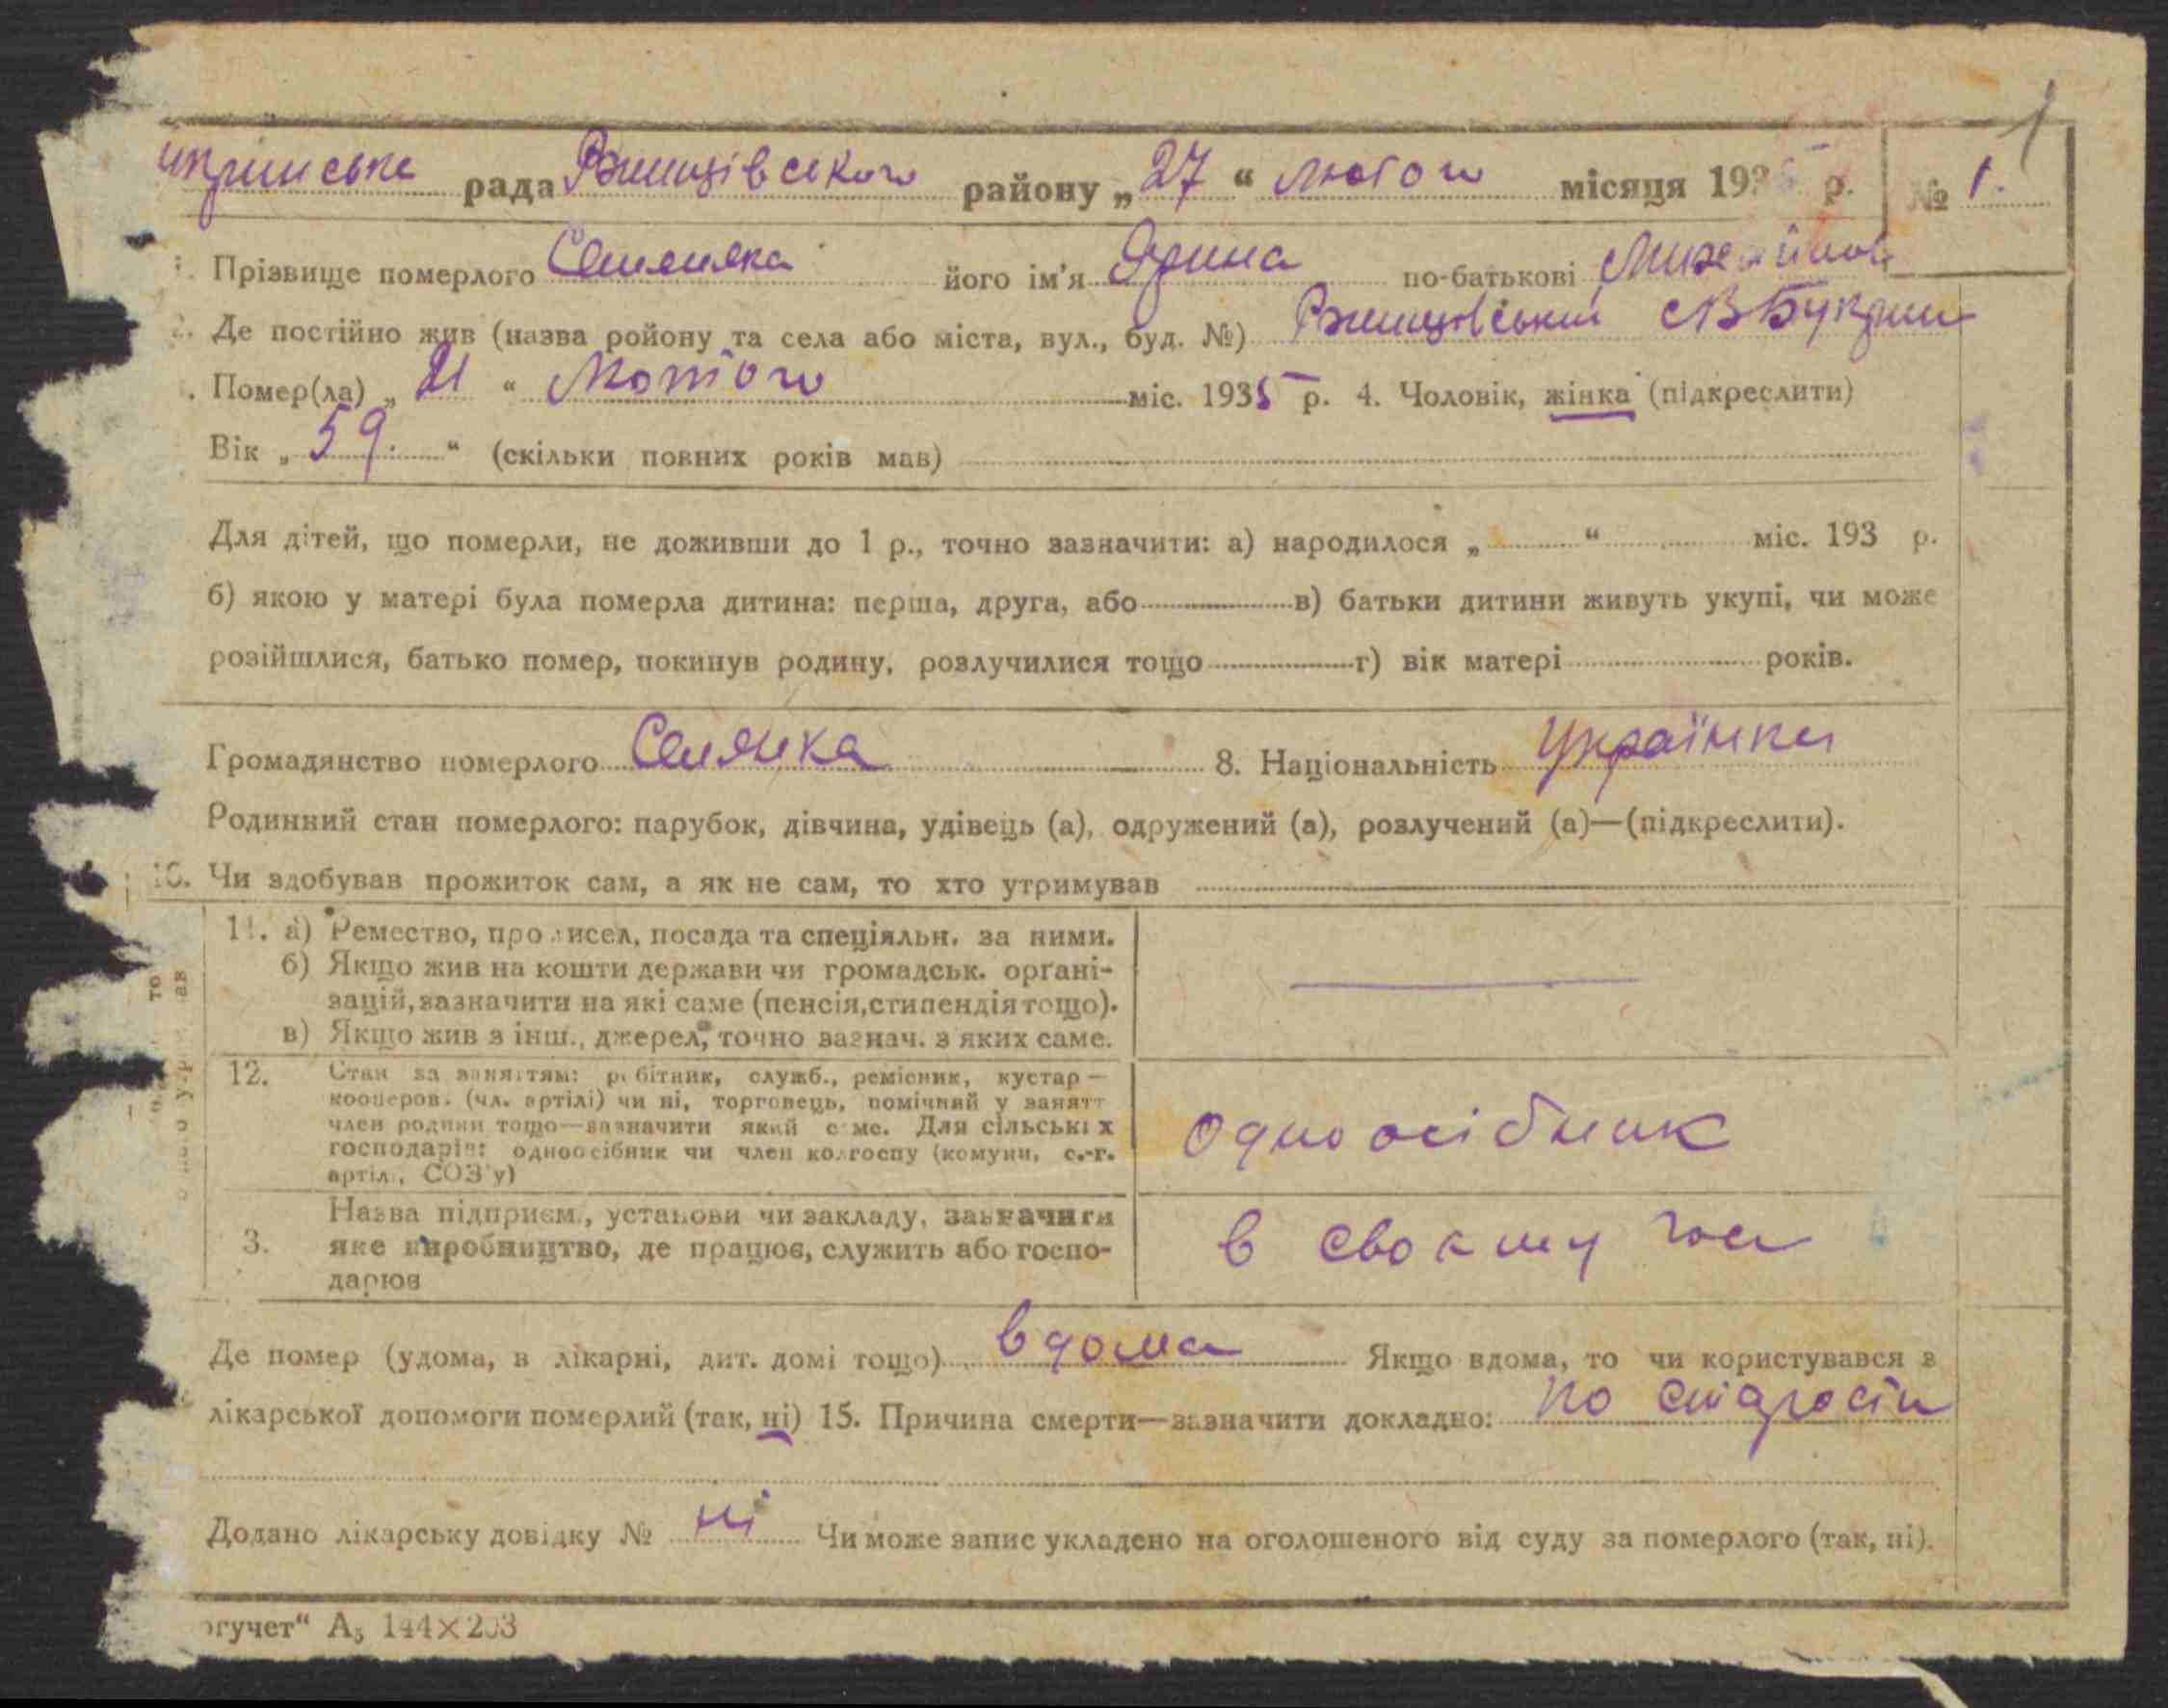 рада Ржищівського району „27“ Лютого місяця 193 р. № 1. 1
Прізвище померлого Семеняка його ім'я Ярина по-батькові Михайлов
2. Де постійно жив (назва ройону та села або міста, вул., буд. №) Ржищівський с В Букрин
Помер(ла) „21“ Лютого міс. 1935 р. 4. Чоловік, жінка (підкреслити)
Вік „59.“ (скільки повних років мав)
Для дітей, що померли, не доживши до 1 р., точно зазначити: а) народилося „ “ міс. 193 р.
б) якою у матері була померла дитина: перша, друга, або в) батьки дитини живуть укупі, чи може
розійшлися, батько помер, покинув родину, розлучилися тощо г) вік матері років.
Громадянство померлого Селянка 8. Національність Українка
Родинний стан померлого: парубок, дівчина, удівець (а), одружений (а), розлучений (а)—(підкреслити).
10. Чи здобував прожиток сам, а як не сам, то хто утримував
11. а) Ремество, промисел, посада та спеціяльн. за ними.
б) Якщо жив на кошти держави чи громадськ. орґані-
зацій, зазначити на які саме (пенсія, стипендія тощо).
в) Якщо жив з інш., джерел, точно зазнач. з яких саме.
12. Стан за заняттям: робітник, служб., ремісник, кустар —
кооперов. (чл. артілі) чи ні, торговець, помічний у занятт
член родини тощо—зазначити який саме. Для сільських
господарів: одноосібник чи член колгоспу (комуни, с.-г.
артілі, СОЗ'у)
одноосібник
Назва підприєм., установи чи закладу, зазначити
3. яке виробництво, де працює, служить або госпо-
дарює
в своєму гос
Де помер (удома, в лікарні, дит. домі тощо) вдома Якщо вдома, то чи користувався з
лікарської допомоги померлий (так, ні) 15. Причина смерти—зазначити докладно: по старости
Додано лікарську довідку № ні Чи може запис укладено на оголошеного від суду за померлого (так, ні).
огучет“ А₅ 144×203